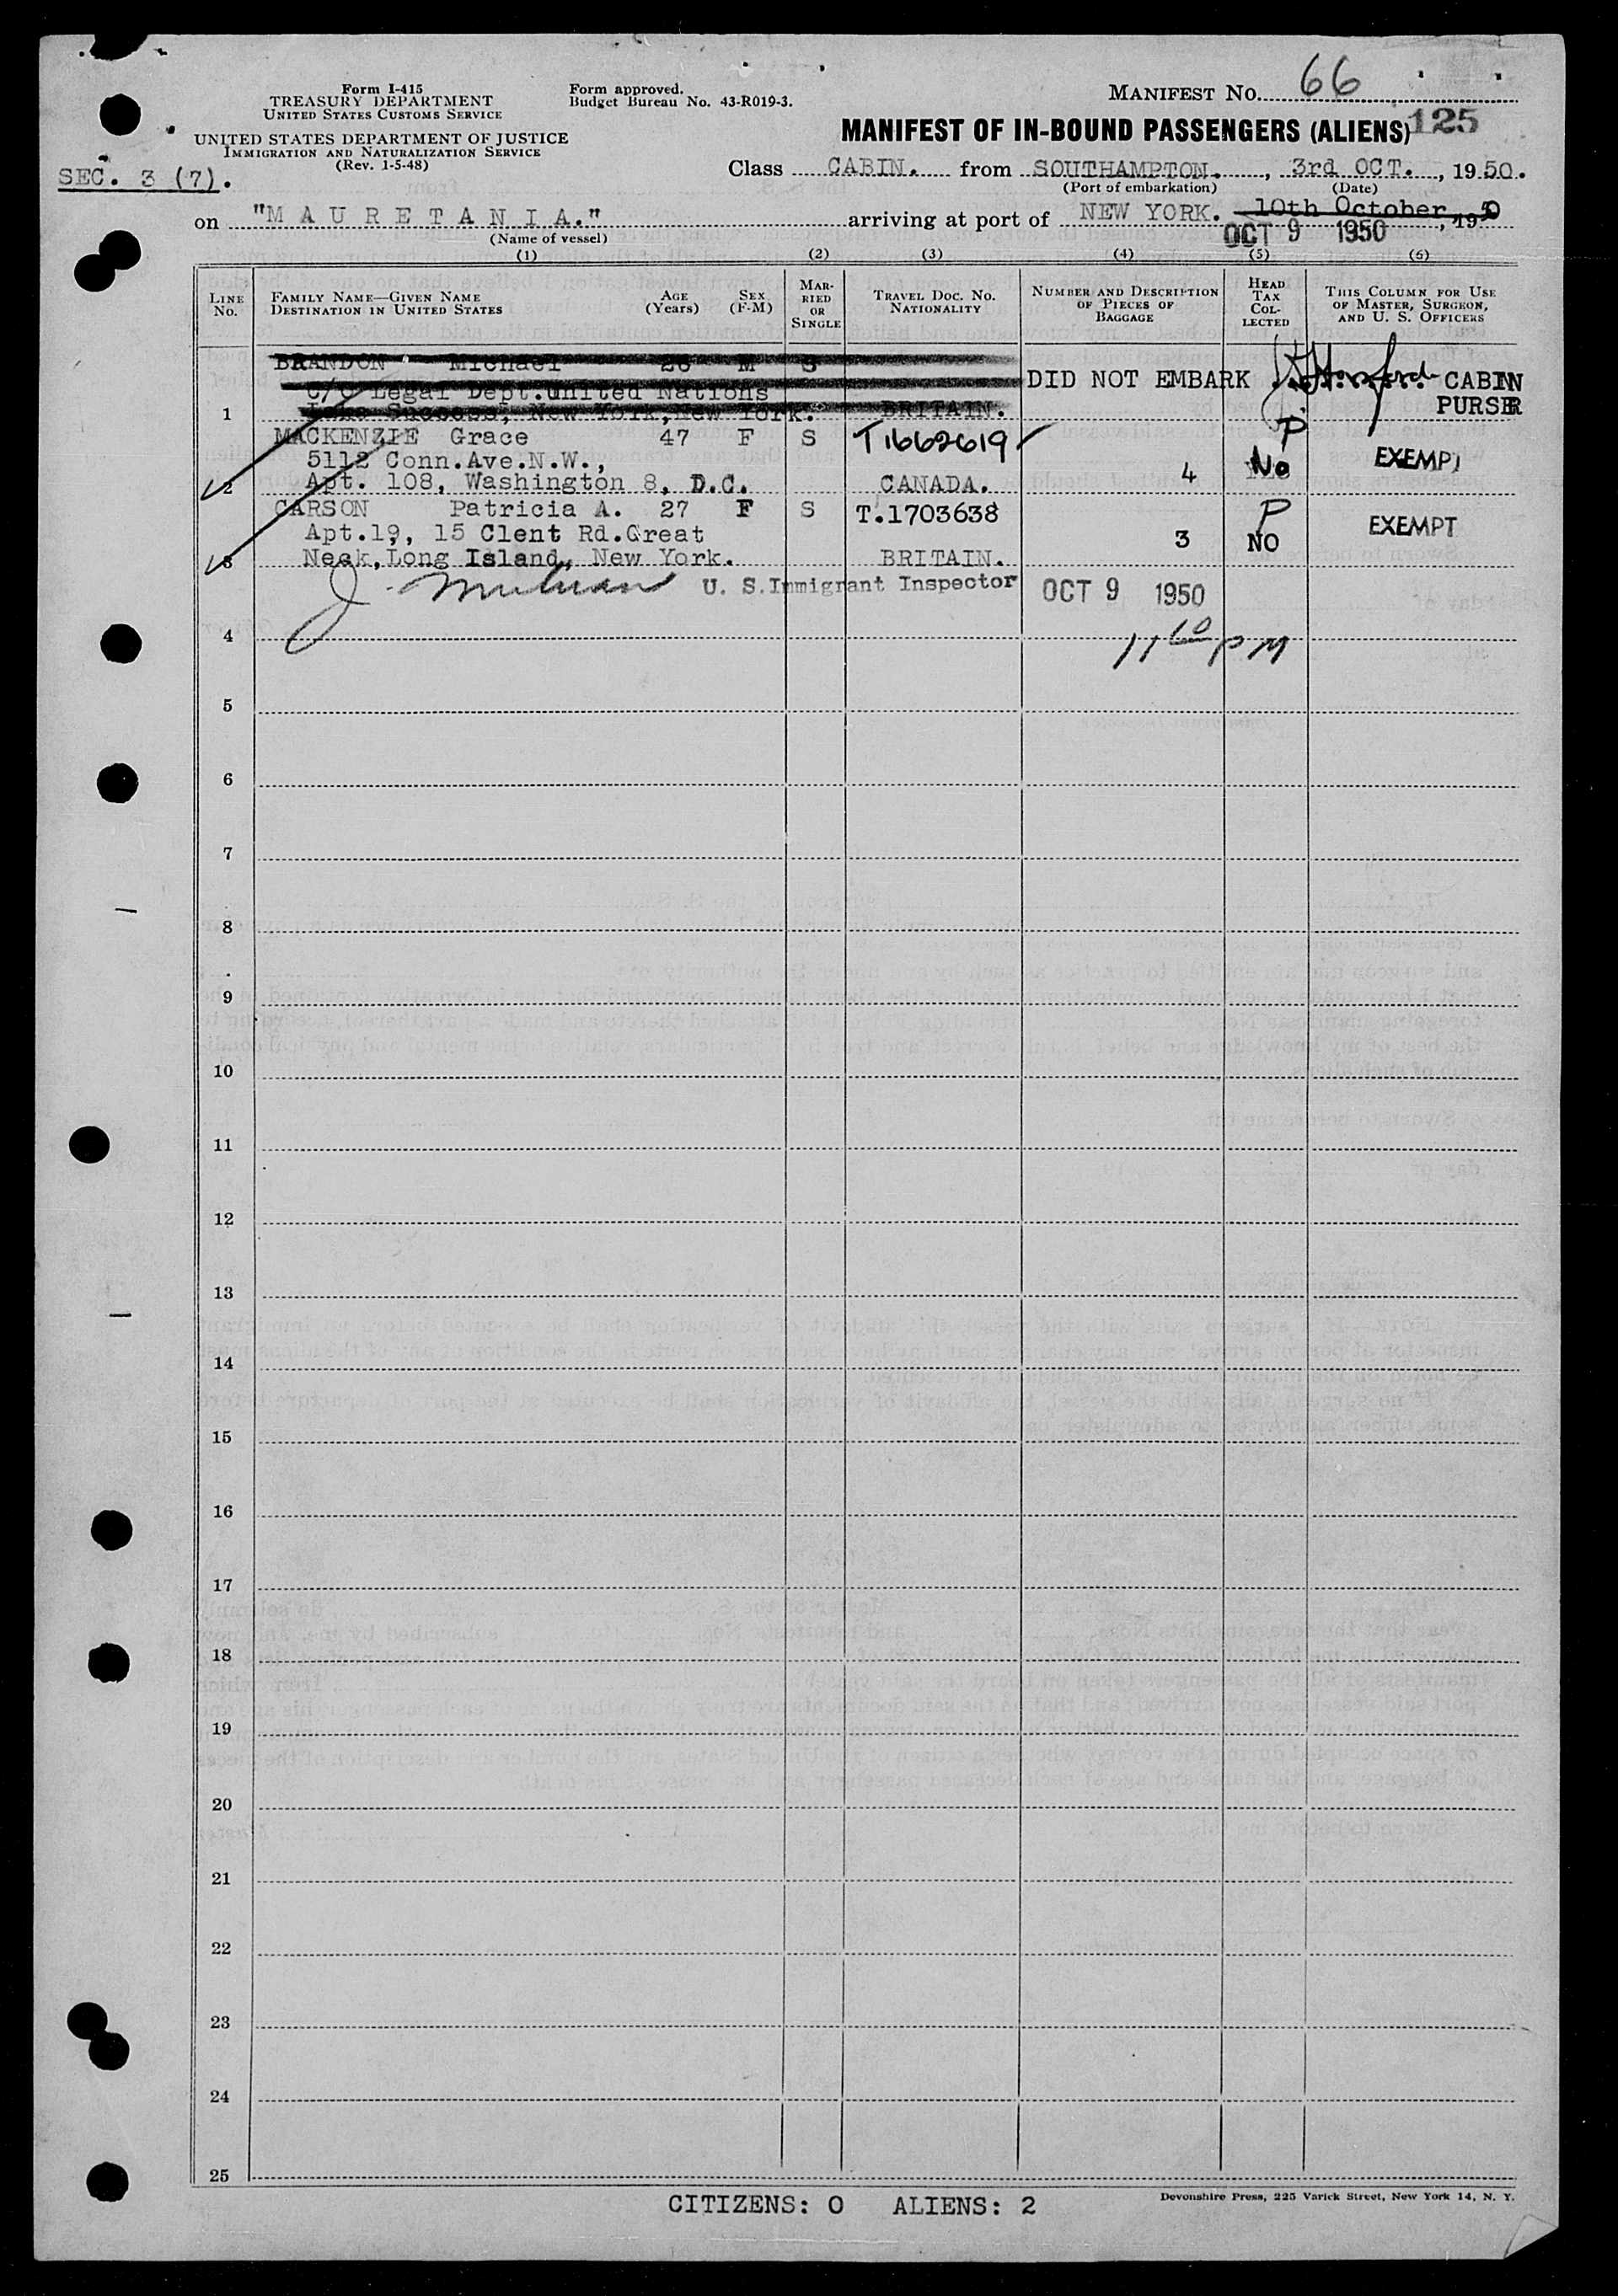 Form I-415
TREASURY DEPARTMENT
UNITED STATES CUSTOMS SERVICE
UNITED STATES DEPARTMENT OF JUSTICE
IMMIGRATION AND NATURALIZATION SERVICE
(Rev. 1-5-48)
Form approved.
Budget Bureau No. 43-R019-3.
MANIFEST No. 66
MANIFEST OF IN-BOUND PASSENGERS (ALIENS) 125
SEC. 3 (7).
Class CABIN. from SOUTHAMPTON., 3rd OCT., 1950.
(Port of embarkation) (Date)
on "MAURETANIA." arriving at port of NEW YORK. 10th October, 1950
(Name of vessel) OCT 9 1950
(1) (2) (3) (4) (5) (6)
LINE No. FAMILY NAME—GIVEN NAME DESTINATION IN UNITED STATES AGE (Years) SEX (F-M) MARRIED OR SINGLE TRAVEL DOC. No. NATIONALITY NUMBER AND DESCRIPTION OF PIECES OF BAGGAGE HEAD TAX COLLECTED THIS COLUMN FOR USE OF MASTER, SURGEON, AND U. S. OFFICERS
BRANDON Michael 26 M S
C/O Legal Dept.United Nations DID NOT EMBARK CABIN
1 Lake Success, New York,New York. BRITAIN. PURSER
MACKENZIE Grace 47 F S T1662619 P
5112 Conn.Ave.N.W., No EXEMPT
2 Apt. 108, Washington 8, D.C. CANADA. 4
CARSON Patricia A. 27 F S T.1703638 P EXEMPT
Apt.19, 15 Clent Rd.Great 3 NO
3 Neck,Long Island, New York. BRITAIN.
U. S.Immigrant Inspector OCT 9 1950
4 PM
5
6
7
8
9
10
11
12
13
14
15
16
17
18
19
20
21
22
23
24
25
CITIZENS: 0 ALIENS: 2
Devonshire Press, 225 Varick Street, New York 14, N. Y.